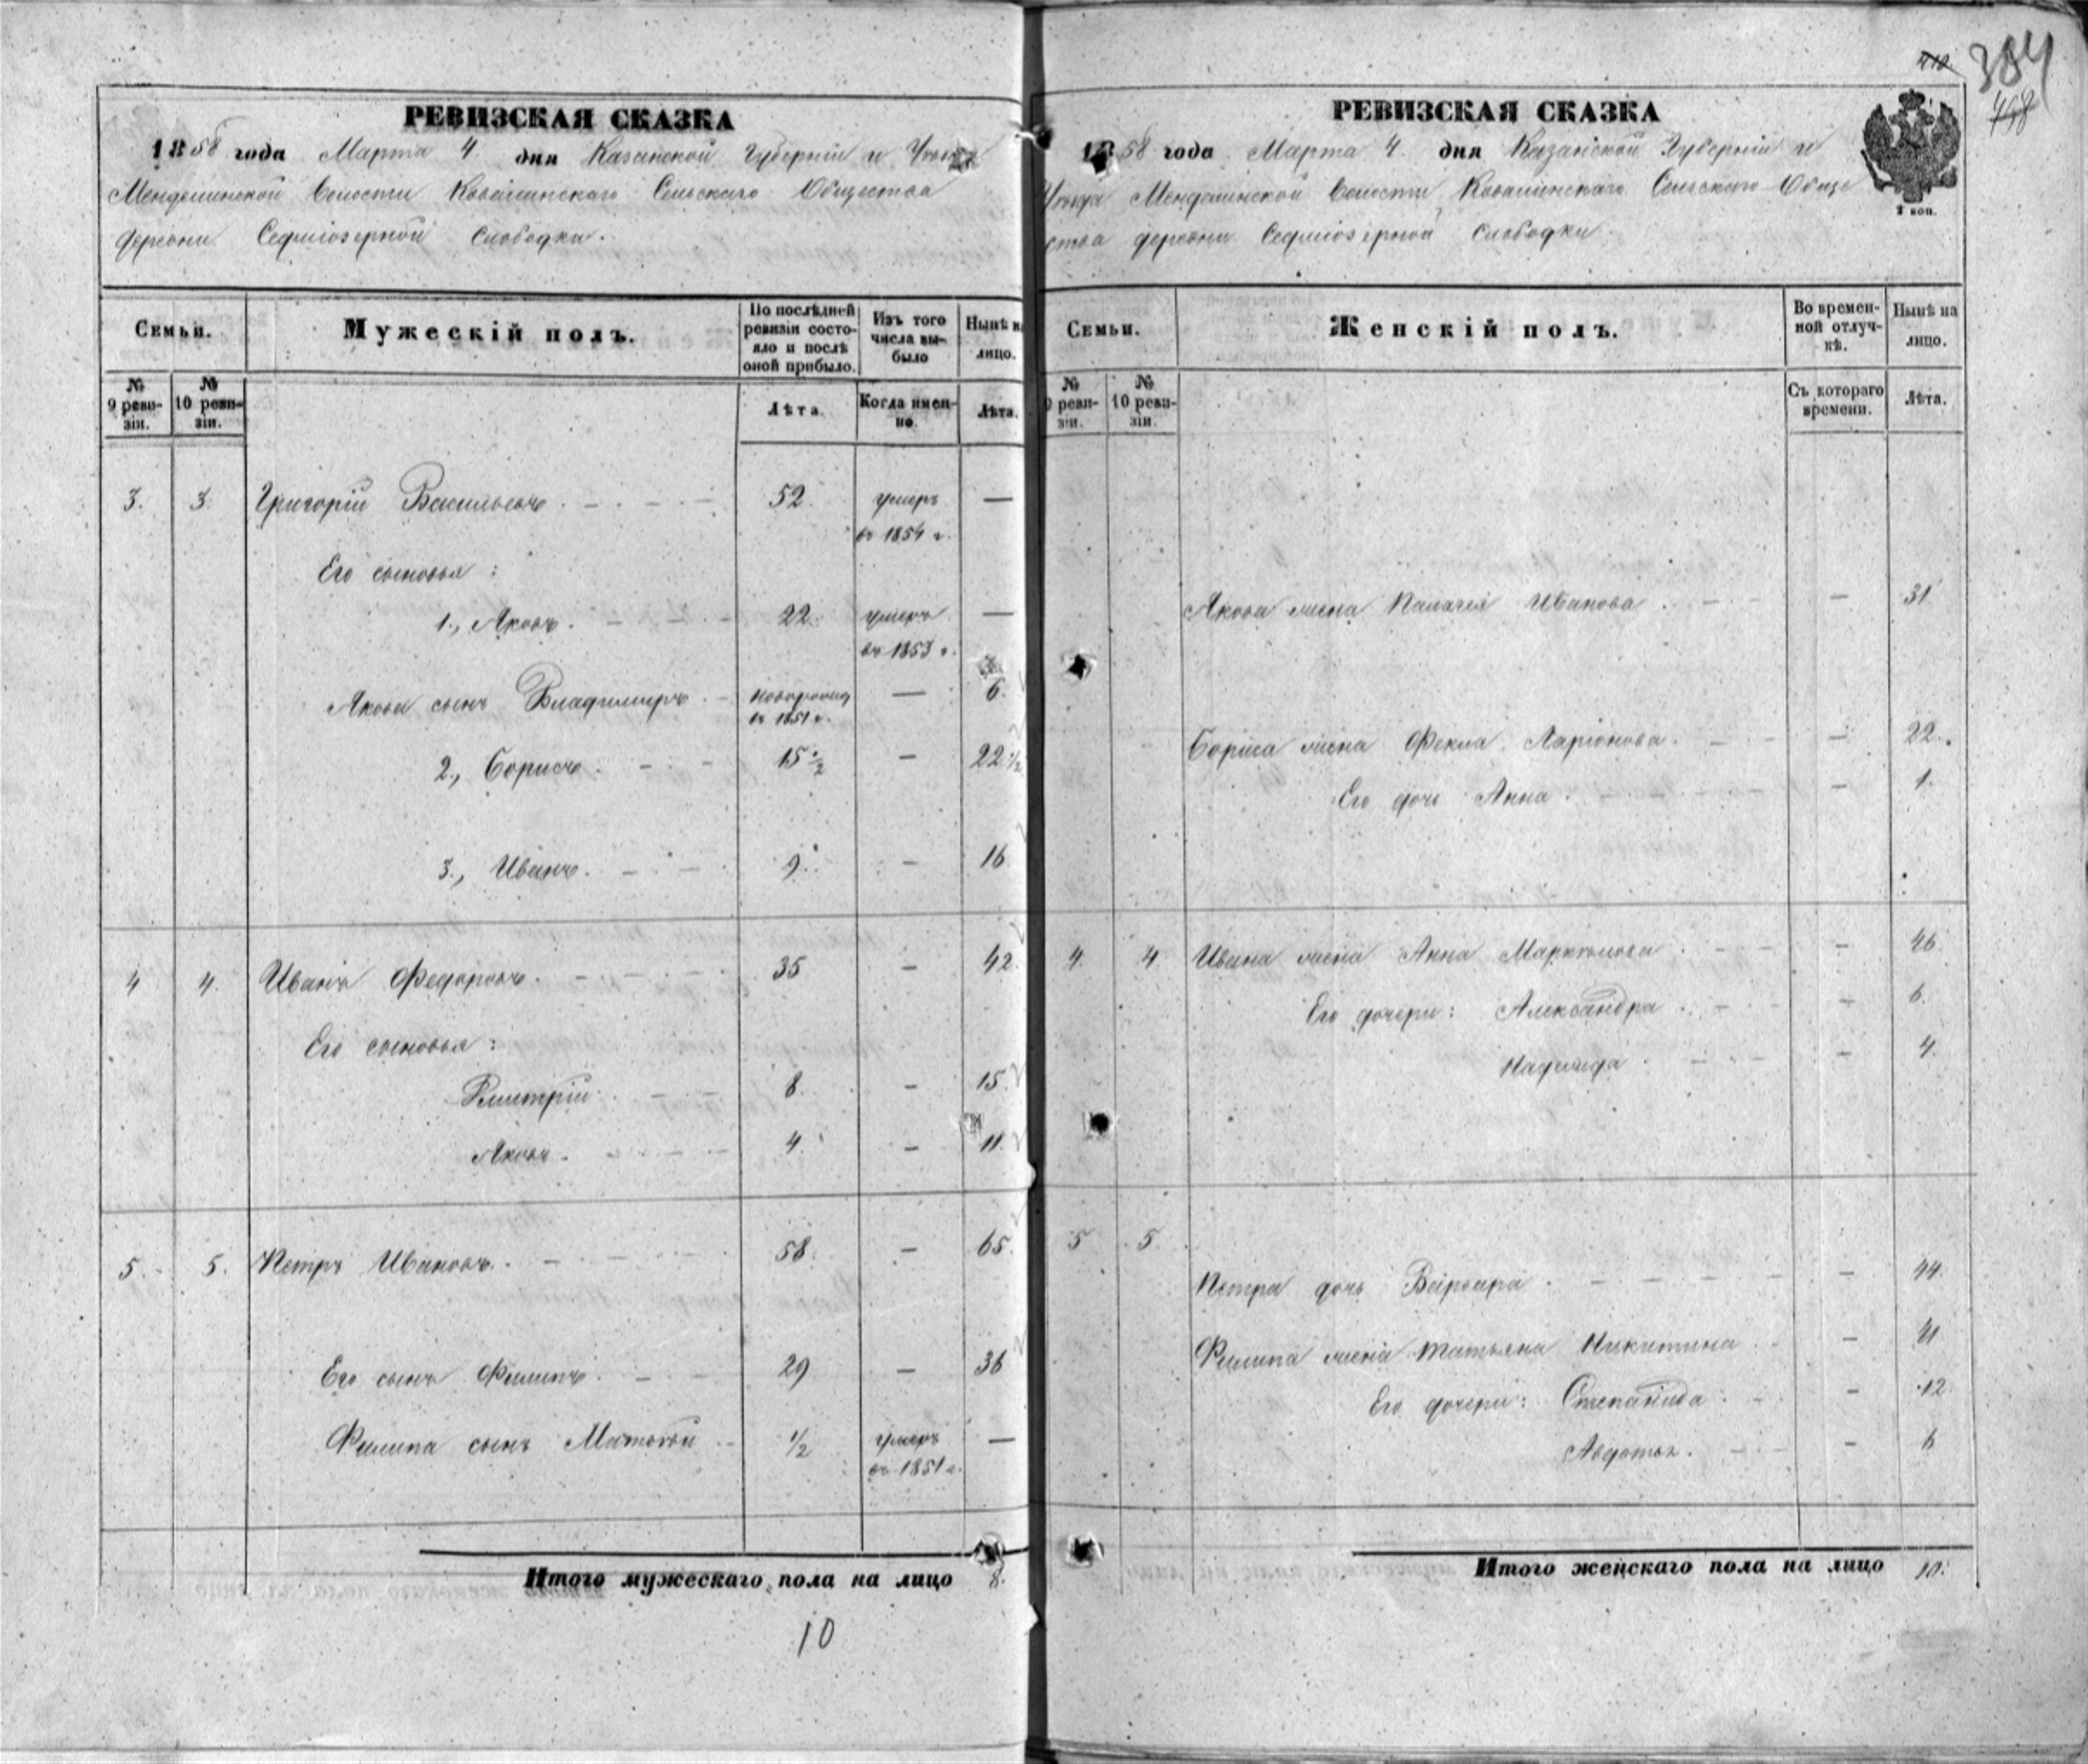 РЕВИЗСКАЯ СКАЗКА
1858 года Марта 4. дня Казанской Губерніи и Уѣзда
Менделинской Волости Ковалинскаго Сельскаго Общества
деревни Седміозерной слободки.
Семьи.
Мужескій полъ.
По послѣдней
ревизіи состо-
яло и послѣ
оной прибыло.
Изъ того
числа вы-
было
Нынѣ на
лицо.
№
9 реви-
зіи.
№
10 реви-
зіи.
Лѣта.
Когда имен-
но.
Лѣта.
3. 3. Григорій Васильевъ 52. умеръ —
въ 1854 г.
Его сыновья:
1., Яковъ. 22. умеръ —
въ 1853 г.
Якова сынъ Владимиръ новорожд — 6.
въ 1851 г.
2., Борисъ. 15 1/2 — 22 1/2
3., Иванъ. 9. — 16
4 4. Иванъ Федоровъ. 35 — 42.
Его сыновья:
Дмитрій 8. — 15.
Яковъ. 4. — 11.
5. 5. Петръ Ивановъ. 58. — 65.
Его сынъ Филипъ. 29 — 36
Филипа сынъ Матвѣй 1/2 умеръ —
въ 1851 г.
Итого мужескаго пола на лицо 8.
10
412. 384
458
РЕВИЗСКАЯ СКАЗКА
1858 года Марта 4. дня Казанской Губерніи и
Уѣзда Менделинской Волости Ковалинскаго Сельскаго Обще
ства деревни Седміозерной слободки.
2 коп.
Семьи.
Женскій полъ.
Во времен-
ной отлуч-
кѣ.
Нынѣ на
лицо.
№
9 реви-
зіи.
№
10 реви-
зіи.
Съ котораго
времени.
Лѣта.
Якова жена Палагея Иванова — 31
Бориса жена Фекла Ларіонова. — 22.
Его дочь Анна. — 1.
4. 4 Ивана жена Анна Маркелова — 46.
Его дочери: Александра — 6.
Надежда — 4.
5 5. Петра дочь Варвара — 44.
Филипа жена Татьяна Никитина — 41
Его дочери: Степанида — 12
Авдотья. — 6
Итого женскаго пола на лицо 10.